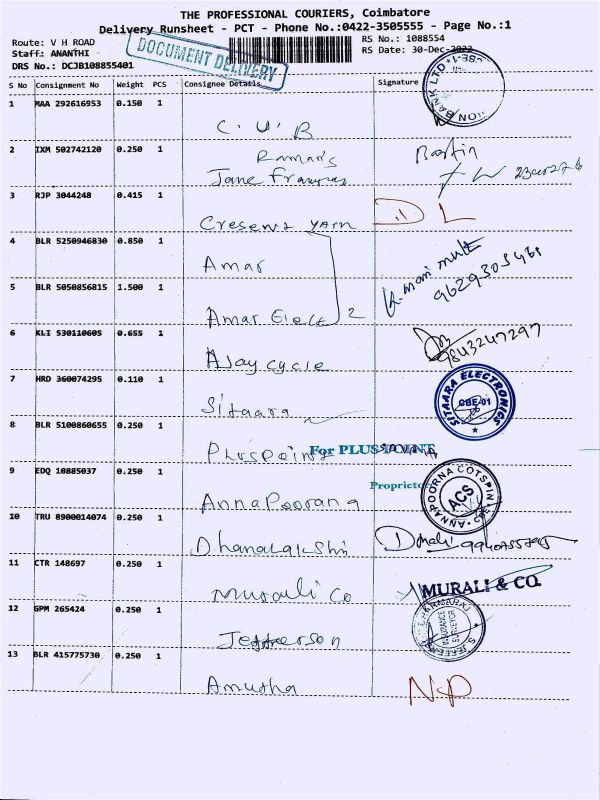 THE PROFESSIONAL COURIERS, Coimbatore
Delivery Runsheet - PCT - Phone No.:0422-3505555 - Page No.:1
Route: V H ROAD
Staff: ANANTHI
DRS No.: DCJB108855401
DOCUMENT DELIVERY
RS No.: 1088554
RS Date: 30-Dec-2022
S No Consignment No Weight PCS Consignee Details Signature
1 MAA 292616953 0.150 1
C.U.B
BANK LTD CBE-1
2 IXM 502742120 0.250 1
Raman's
Jane
3 RJP 3044248 0.415 1
Cresent Yarn
DL
4 BLR 5250946830 0.850 1
Amar
5 BLR 5050856815 1.500 1
Amar Elect 2
9629305461
6 KLI 530110605 0.655 1
Ajay cycle
9843247297
7 HRD 360074295 0.110 1
Sitaara
SITAARA ELECTRONICS
CBE-01
8 BLR 5100860655 0.250 1
Pluspoint
For PLUS POINT
Proprietor
9 EDQ 10885037 0.250 1
Annapoorana
ANNAPOORNA COTSPIN
ACS
10 TRU 8900014074 0.250 1
Dhanalakshi
11 CTR 148697 0.250 1
Murali Co
MURALI & CO.
12 GPM 265424 0.250 1
Jefferson
INSURANCE
SURVEYOR
13 BLR 415775730 0.250 1
Amutha
NP